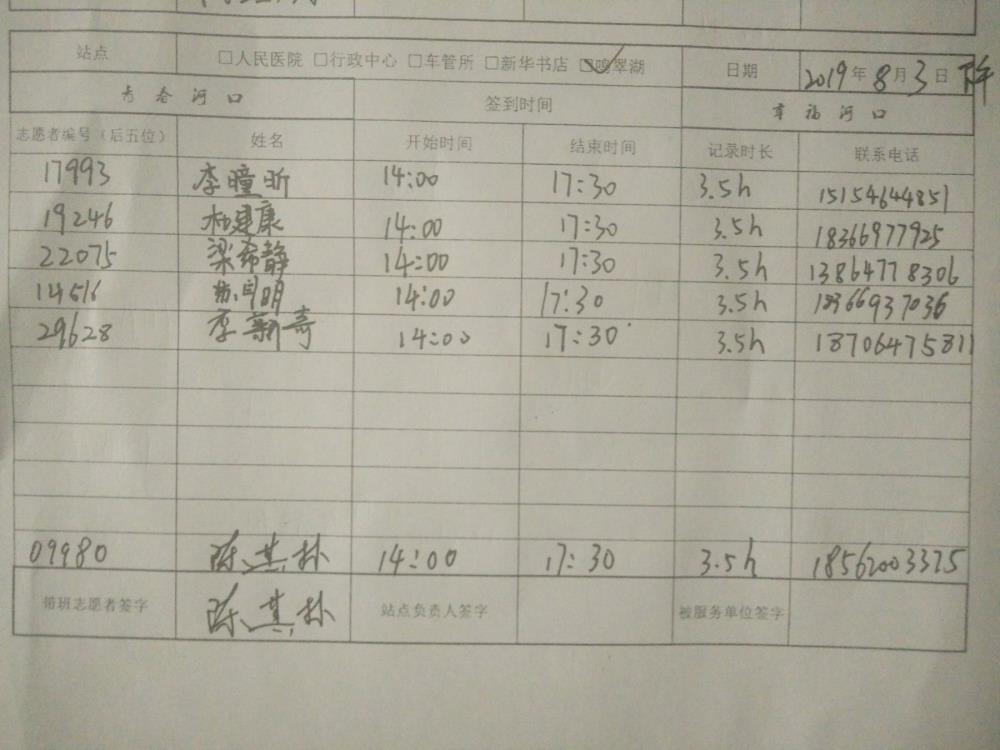 站点 □人民医院 □行政中心 □车管所 □新华书店 ☑鸣翠湖 日期 2019年8月3日 下午
青春河口 签到时间 幸福河口
志愿者编号（后五位） 姓名 开始时间 结束时间 记录时长 联系电话
17993 李曈昕 14:00 17:30 3.5h 15154644851
19246 杜建康 14:00 17:30 3.5h 18366977925
22075 梁希静 14:00 17:30 3.5h 13864778306
14516 明 14:00 17:30 3.5h 18366937036
29628 李新奇 14:00 17:30 3.5h 18706475811
09980 陈其朴 14:00 17:30 3.5h 18562003375
带班志愿者签字 陈其朴 站点负责人签字 被服务单位签字